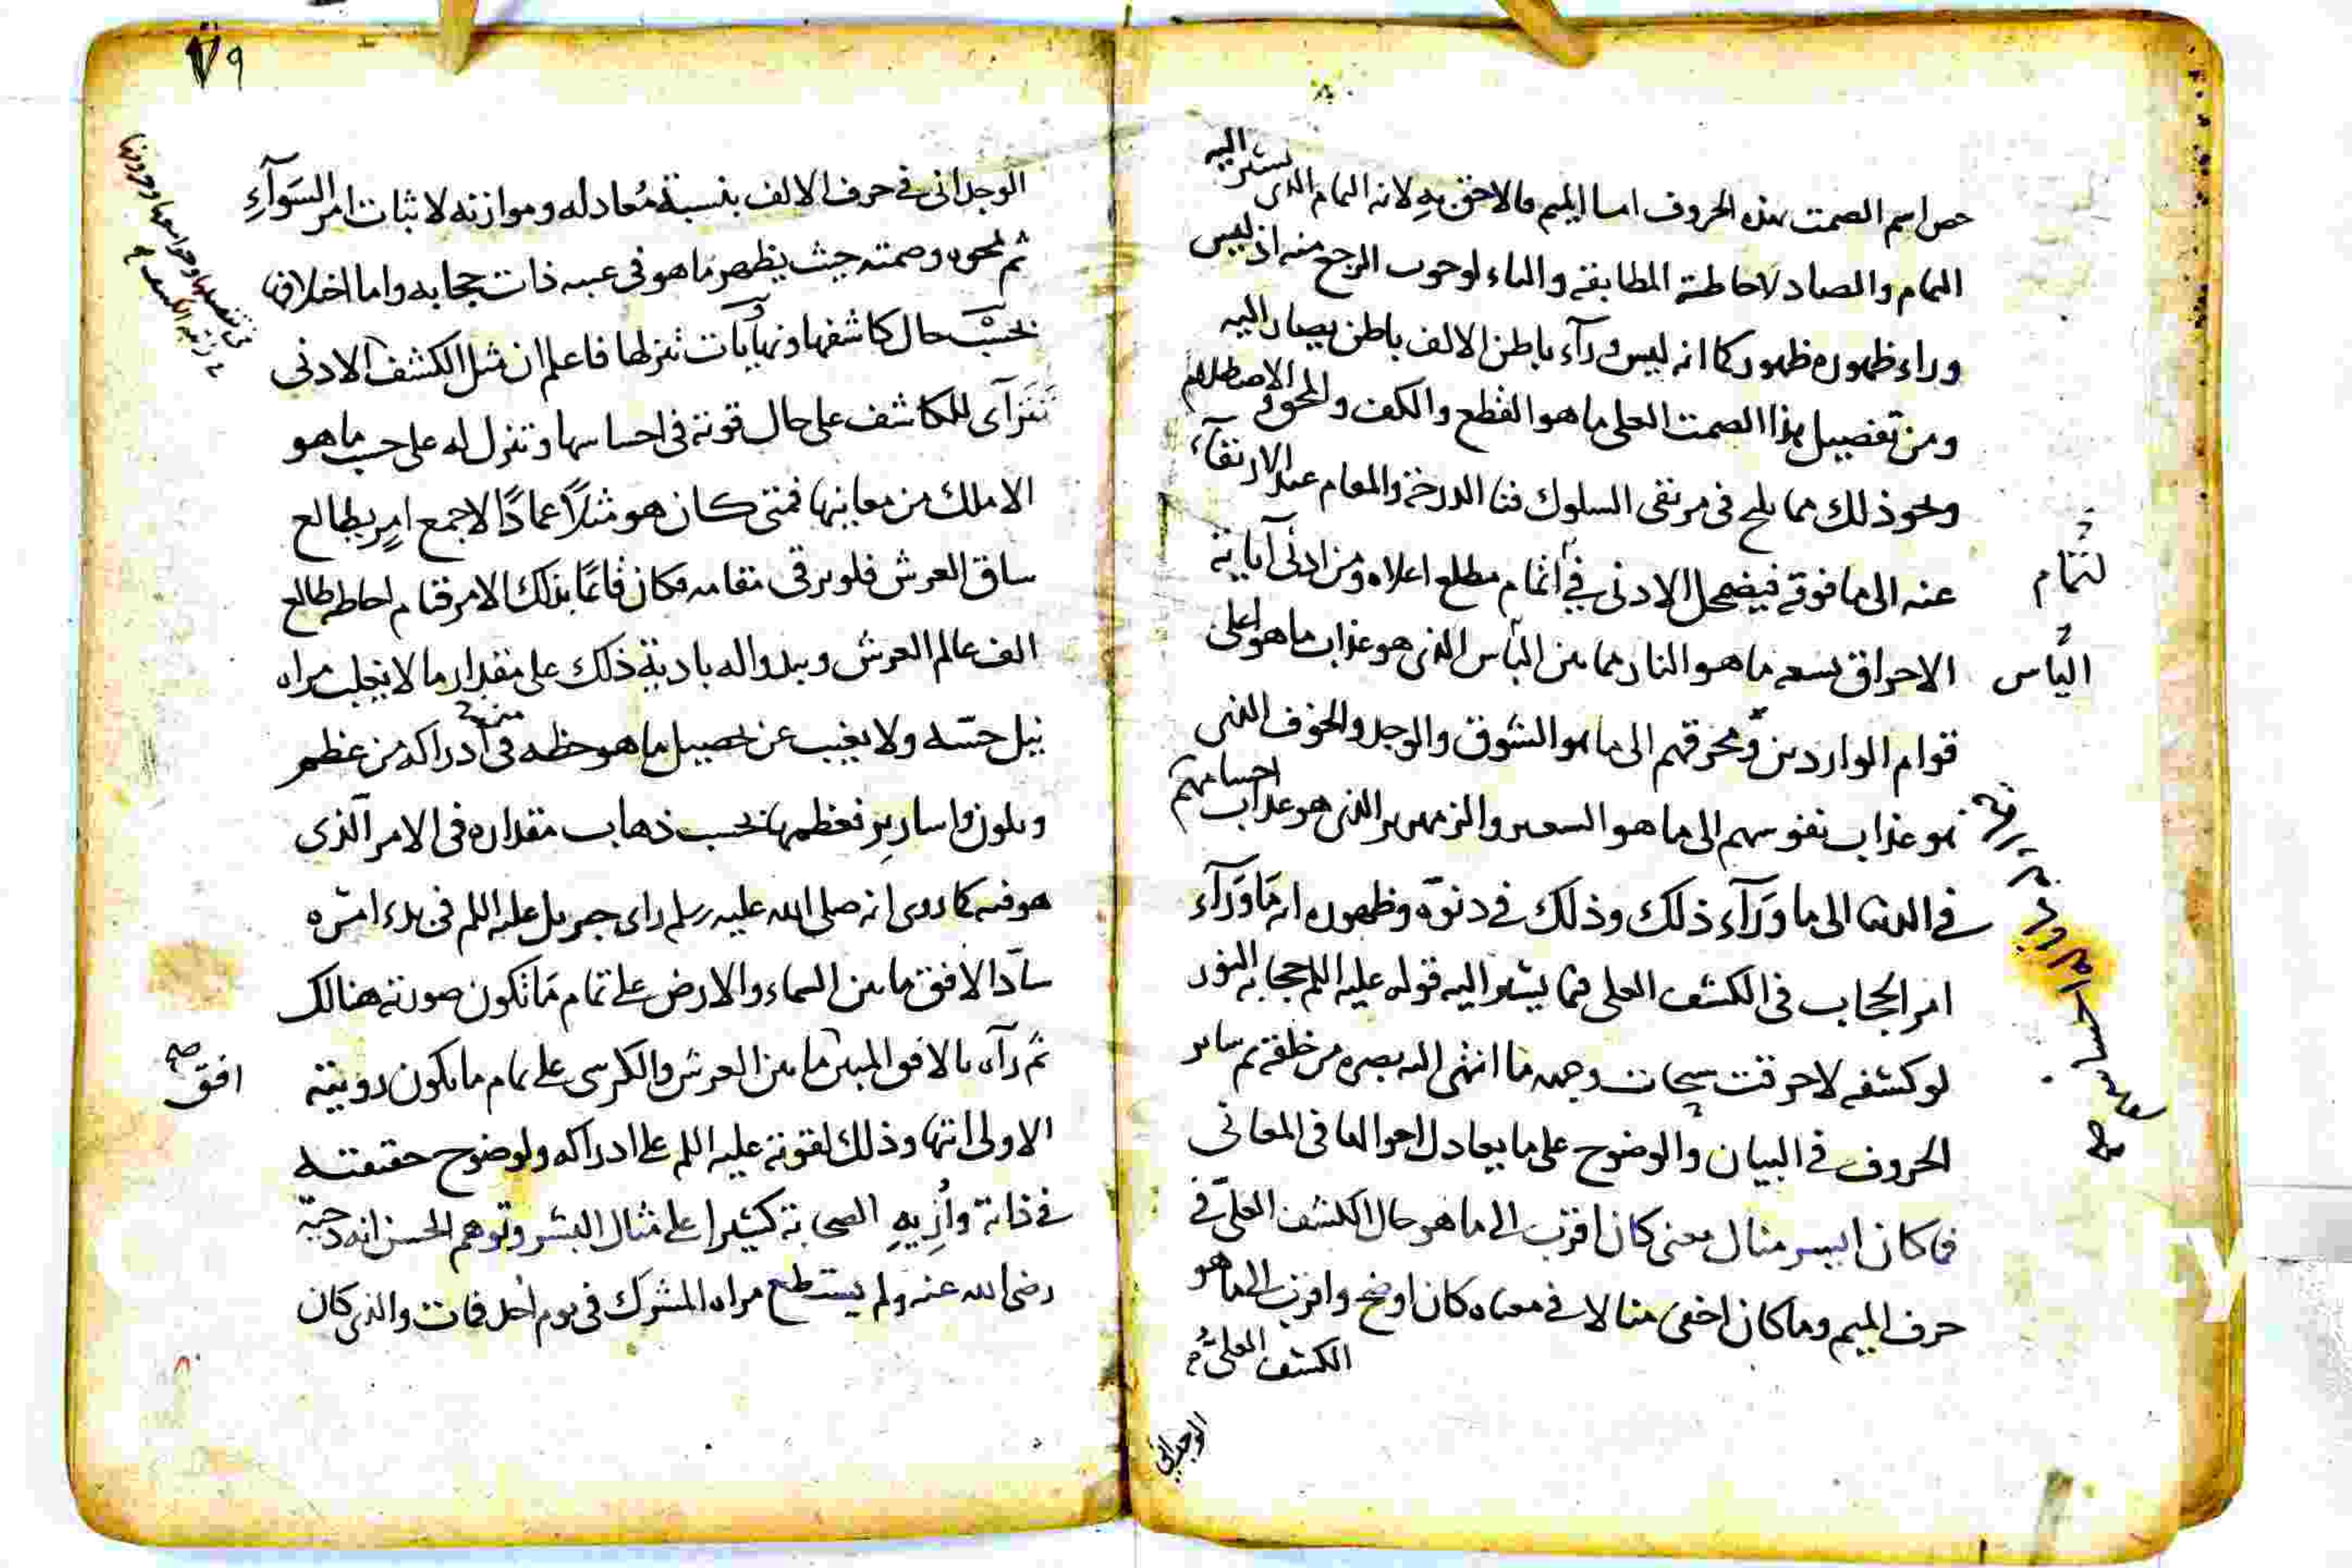 حص اسم الصمت بهذه الحروف اما الميم فالاحق به لانه التمام الذى يستقر اليه
التمام والصاد لاحاطة المطابقة والتاء لوجوب الرجع منه اذ ليس
وراء ظهوره ظهور كما انه ليس ورآء باطن الالف باطن يصار اليه
ومن تفصيل هذا الصمت العلى ما هو القطع والكف والمحو والاصطلام
ونحو ذلك مما يلح فى مرتقى السلوك فنا الدرجة والمقام عند الارتقآء
عنه الى ما فوقه فيضمحل الادنى فى اتمام مطلع اعلاه ومن ادنى آياته
لتمام
الاحراق بسعه ما هو النار مما من البأس الذى هو عذاب ما هو اعلى
البأس
قوام الواردين ومحرقهم الى ما هو الشوق والوجد والخوف الذى
هو عذاب نفوسهم الى ما هو السعير والزمهرير الذى هو عذاب احسامهم
فى الدنيا الى ما ورآء ذلك وذلك فى دنوه وظهوره انه ما ورآء
امر الحجاب فى الكشف العلى فيما يشير اليه قوله عليه السلم حجابه النور
لو كشفه لاحرقت سبحات وجهه ما انتهى اليه بصره من خلقه ثم ساير
الحروف فى البيان والوضوح على ما يعادل احوالها فى المعانى
فما كان ايسر مثال معنى كان اقرب الى ما هو حال الكشف العلى فى
حرف الميم وما كان اخفى مثالا فى معناه كان اوضح واقرب الى ما هو
الكشف العلى
الوجدانى
٧٩
الوجدانى فى حرف الالف بنسبة معادله وموازنه لاثبات امر السوآء
ثم نحوه وصمته حيث يظهر ما هو فى عيبه ذات حجابه واما اختلافها
بحسب حال كاشفها ونهايات تنزلها فاعلم ان مثل الكشف الادنى
تترآى للمكاشف على حال قوته فى احساسها وتنزل له على حسب ما هو
الاملك من معاينها فمتى كان هو مثلا عمادا لاجمع امر يطالع
ساق العرش فلو يرقى مقامه فكان قائما بذلك الامر قيام احاطه طالع
الف عالم العرش ويبدوا له بادية ذلك على مقدار ما لا يغلب مراه
نيل حسه ولا يغيب عن تحصيل ما هو حظه فى ادراكه من عظم
وبلون واسارير تعظمها بحسب ذهاب مقداره فى الامر الذى
هو فيه كما روى انه صلى الله عليه وسلم راى جبريل عليه السلم فى بدء امره
سادا الافق ما بين السماء والارض على تمام ما تكون صورته هنالك
ثم رآه بالافق المبين ما بين العرش والكرسى على تمام ما يكون رويته
افق صح
الاولى انتها وذلك لقوته عليه السلم على ادراكه ولوضوح حقيقته
فى ذاته وأريه الصحابة كثيرا على مثال البشر وتوهم الحسن انه دحيه
رضى الله عنه ولم يستطع مراه المشرك فى يوم احد فمات والذى كان